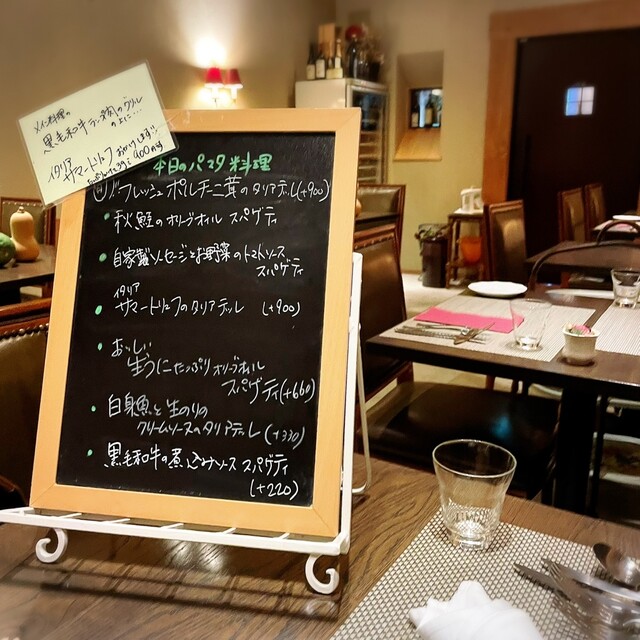 メイン料理の
黒毛和牛ランプ肉のグリル
の上に…
イタリア
サマートリュフおかけします!!
900円
本日のパスタ料理
フレッシュポルチーニ茸のタリアテレ(+900)
・秋鮭のオリーブオイル スパゲティ
・自家製ソーセージとお野菜のトマトソース
スパゲティ
イタリア
・サマートリュフのタリアテレ (+900)
・おいしい
生うにたっぷりオリーブオイル
スパゲティ(+660)
・白身魚と生のりの
クリームソースのタリアテレ(+330)
・黒毛和牛の煮込みソース スパゲティ
(+220)